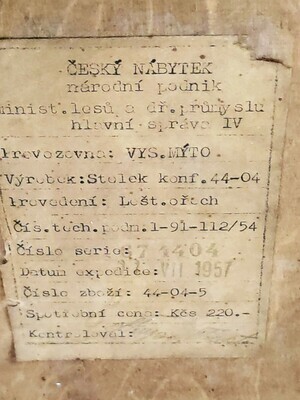 ČESKÝ NÁBYTEK
národní podnik
minist.lesů a dř.průmyslu
hlavní správa IV
Provozovna: VYS.MÝTO.
Výrobek:Stolek konf.44-04
Provedení: Lešt.ořech
Čís.tech.podm.1-91-112/54
Číslo serie: 7 1404
Datum expedice: VII 1957
Číslo zboží: 44-04-5
Spotřební cena: Kčs 220.-
Kontroloval: